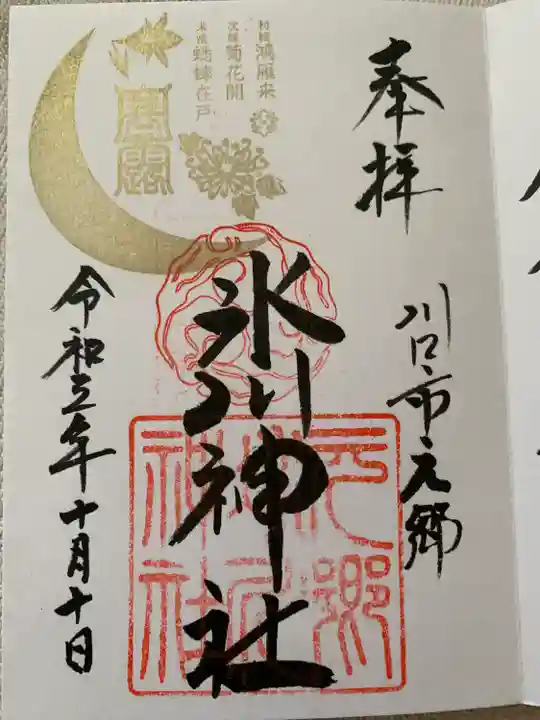 奉拝
川口市元郷
氷川神社
元郷
氷川
神社
初候 鴻雁来
次候 菊花開
末候 蟋蟀在戸
寒露
令和三年十月十日